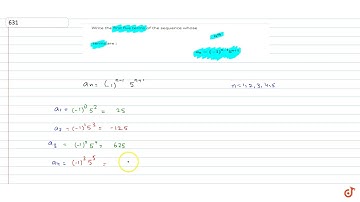 631
Write the first five terms of the sequence whose
aₙ = (-1)ⁿ⁻¹ 5ⁿ⁺¹
aₙ = (-1)ⁿ⁻¹ 5ⁿ⁺¹ n=1,2,3,4,5
a₁ = (-1)⁰ 5² = 25
a₂ = (-1)¹ 5³ = -125
a₃ = (-1)² 5⁴ = 625
a₄ = (-1)³ 5⁵ =